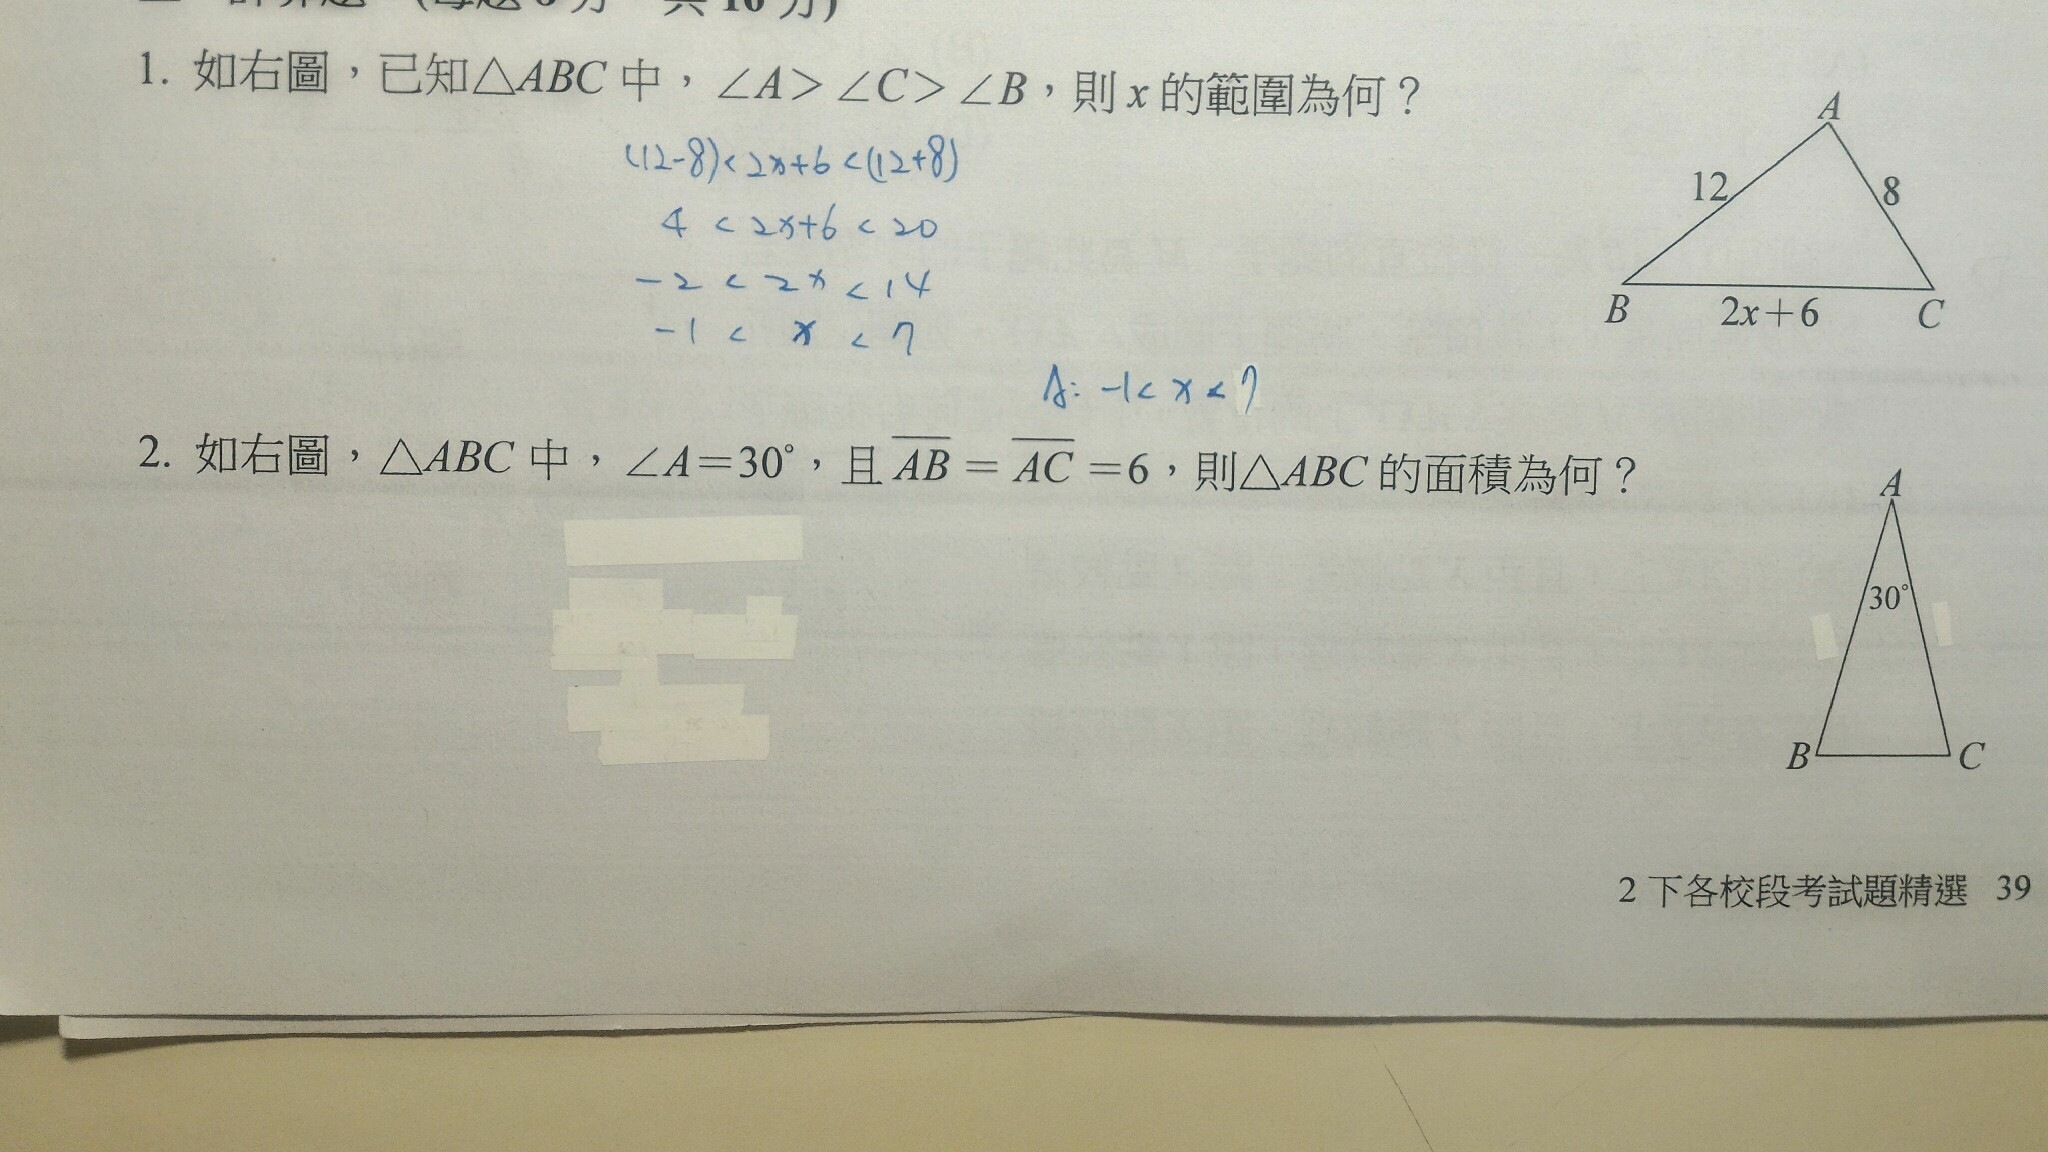 二、計算題 (每題 8 分，共 16 分)
1. 如右圖，已知△ABC 中，∠A＞∠C＞∠B，則 x 的範圍為何？
(12-8)<2x+6<(12+8)
4 < 2x+6 < 20
-2 < 2x < 14
-1 < x < 7
A: -1 < x < 7
A
12
8
B
2x+6
C
2. 如右圖，△ABC 中，∠A=30°，且 AB = AC =6，則△ABC 的面積為何？
A
30°
B
C
2 下各校段考試題精選 39